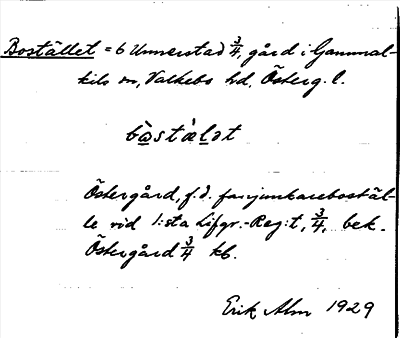 Bostället = 6 Unnerstad 3/4, gård i Gammal-
kils sn, Valkebo hd, Österg. l.
bωstäldt
Östergård, f.d. fanjunkarebostäl-
le vid 1:sta Lifgr.-Reg:t, 3/4, bek.
Östergård 3/4 kb.
Erik Alm 1929